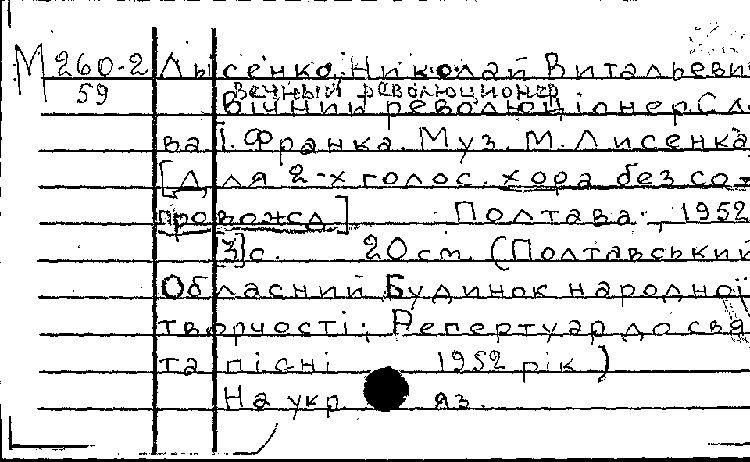 М 260-2 Лысенко, Николай Витальеви
59 Вечный революционер
Вічний революціонер. Сло
ва І. Франка. Муз. М. Лисенка
[Для 2-х голос. хора без со-
провожд] Полтава, 1952
3]с. 20 см. (Полтавський
Обласний Будинок народної
творчості; Репертуар до свя
та пісні 1952 рік)
На укр. яз.